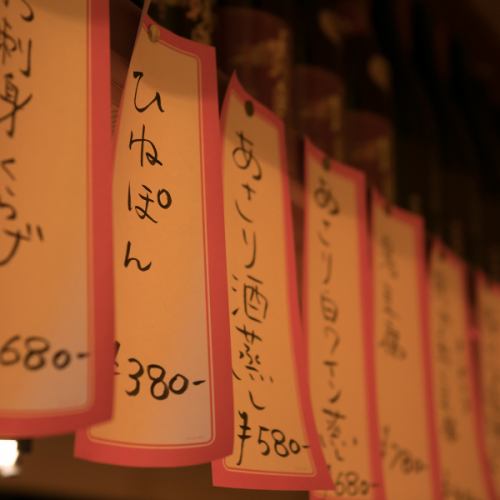 刺身くらげ
680-
ひねぽん
¥380-
あさり酒蒸し
¥580-
あさり白ワイン蒸し
¥680-
¥780-